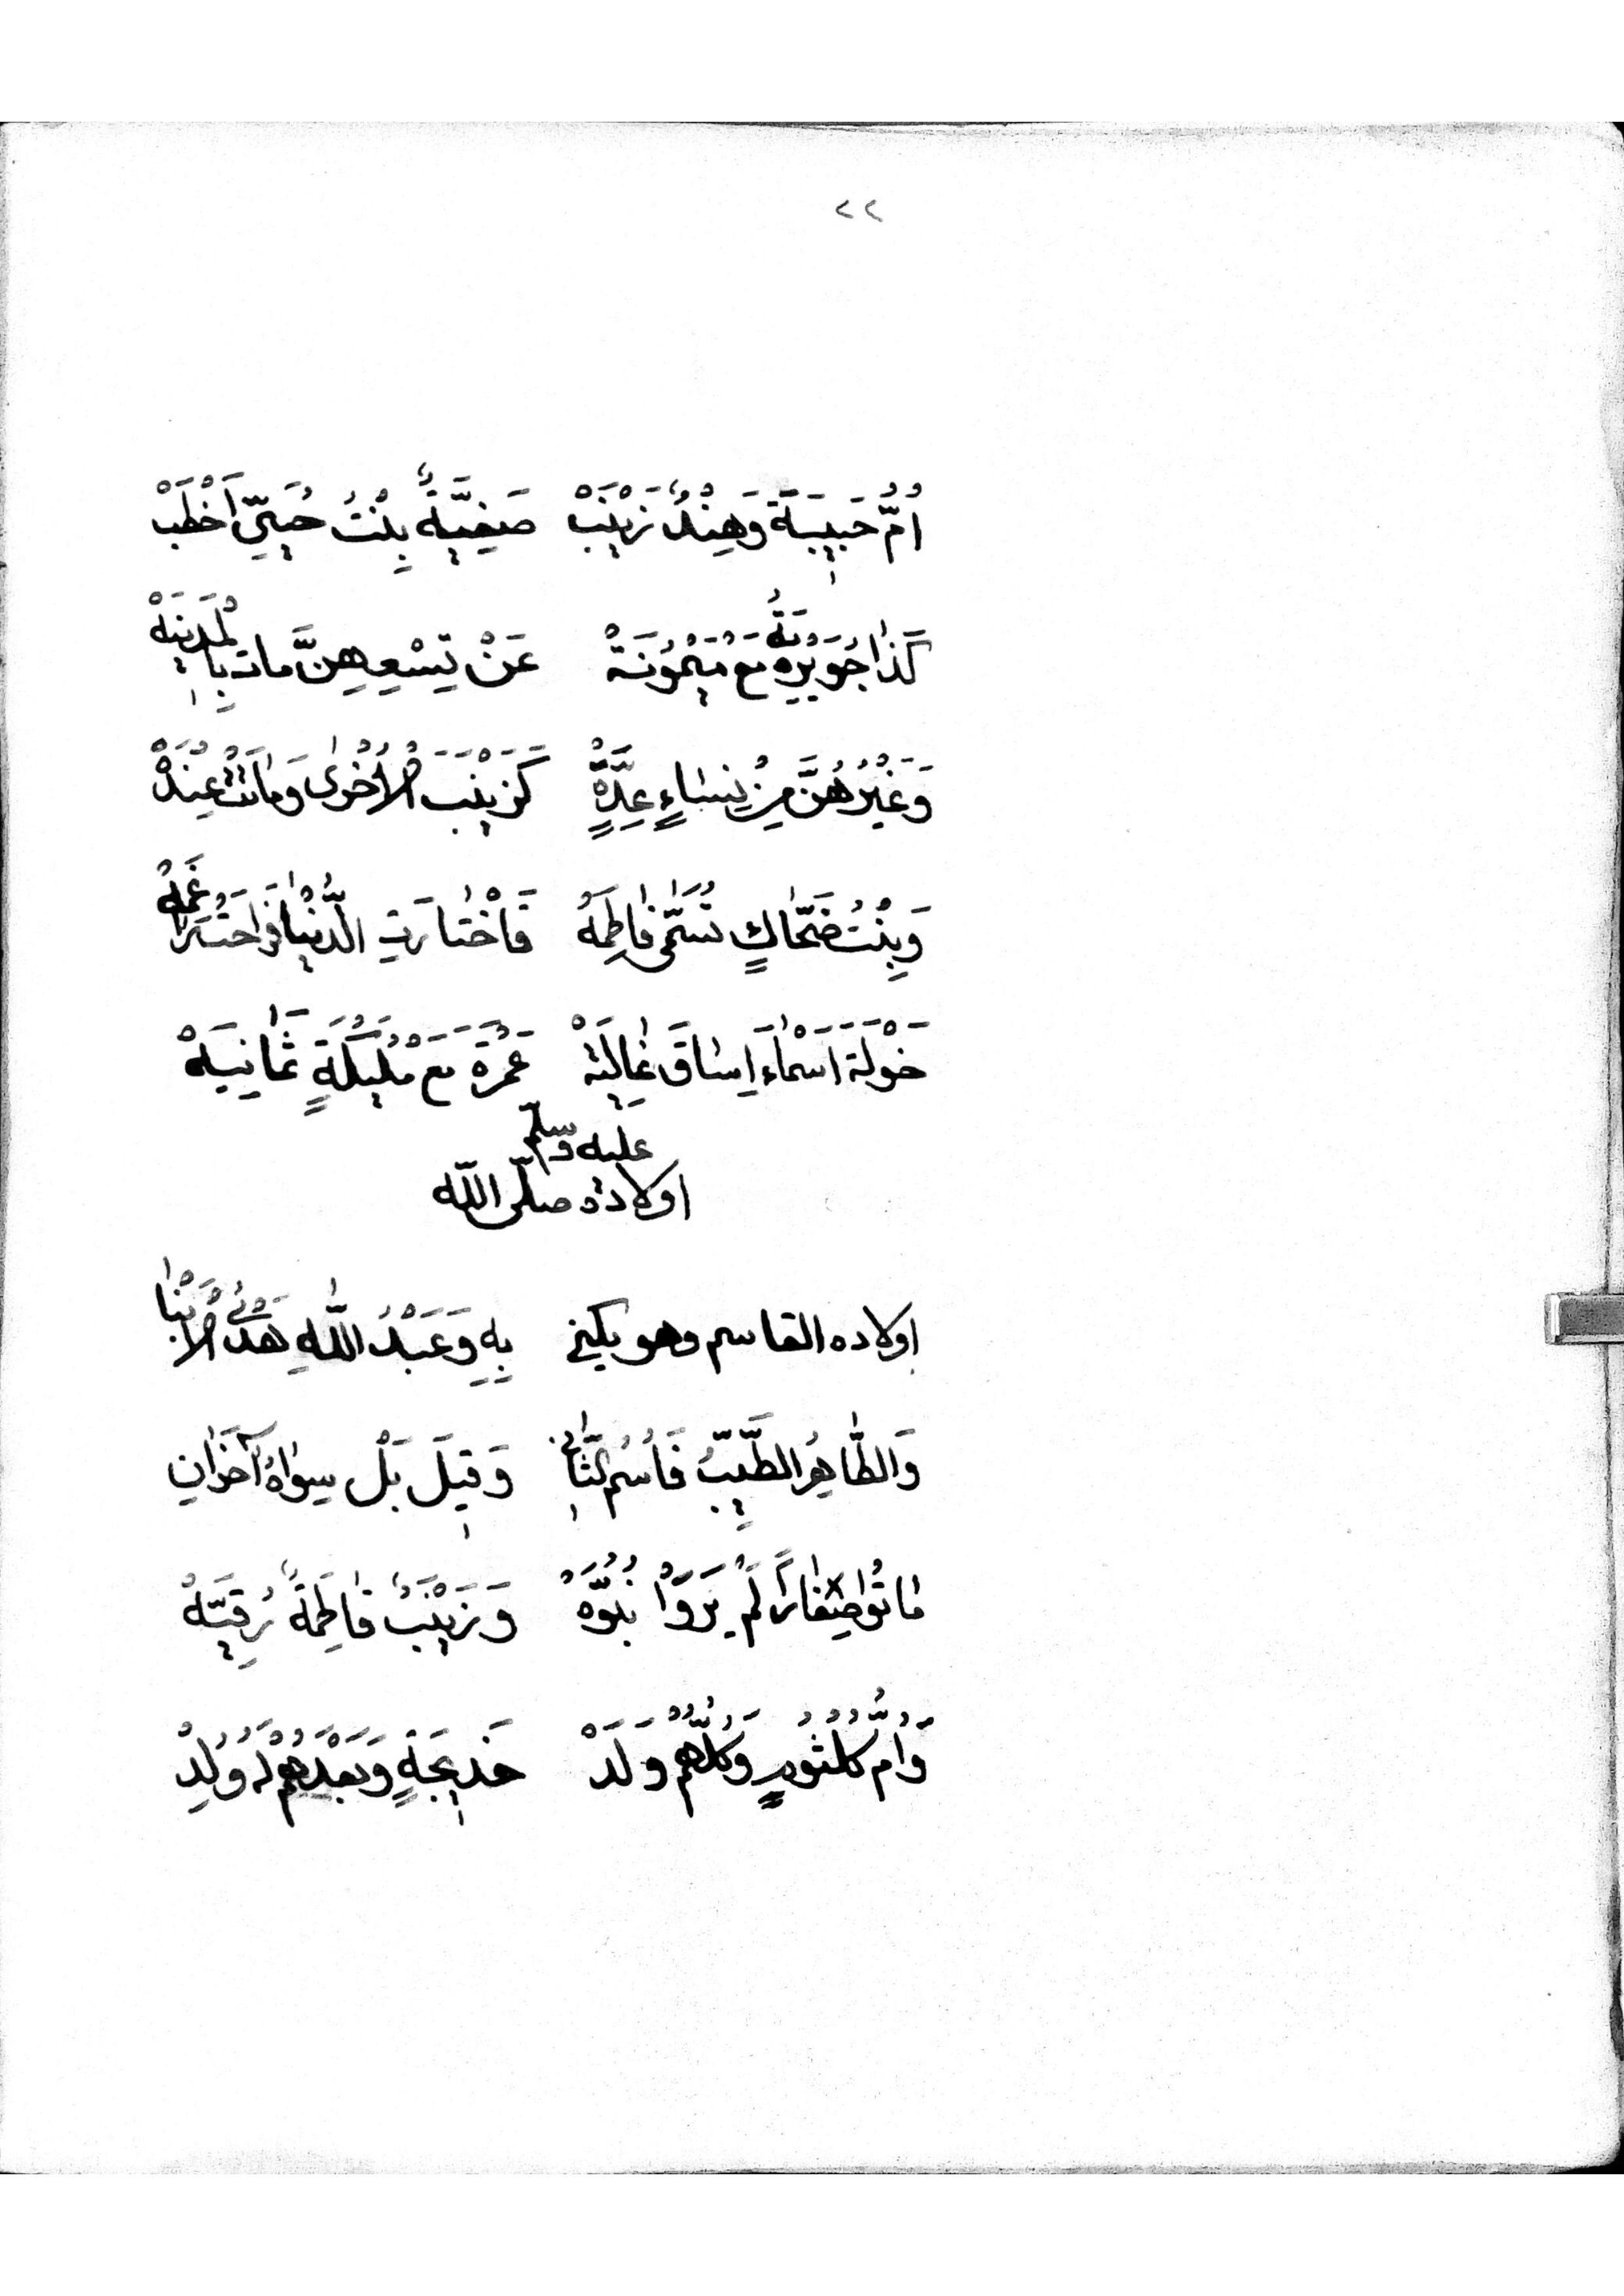 ٢٢
اُمُّ حَبِيبَةَ وَهِنْدٌ زَيْنَبْ صَفِيَّةٌ بِنْتُ حُيَيِّ اَخْطَبْ
كَذَا جُوَيْرِيَةُ مَعْ مَيْمُونَهْ عَنْ تِسْعِهِنَّ مات بِالْمَدِينَهْ
وَغَيْرُهُنَّ مِنْ نِسَاءٍ عِدَّهْ كَزَيْنَبَ الْأُخْرَى وَمَاتَتْ عِنْدَهْ
وَبِنْتُ ضَحَّاكٍ تُسَمَّى فَاطِمَهْ فَاخْتَارَتِ الدُّنْيَا
خَوْلَةَ اَسْمَاءَ اِسَافَ عَالِيَهْ عَمْرَةَ مَعْ مُلَيْكَةٍ ثَمَانِيَهْ
اولاده صلّى اللّه عليه وسلّم
اولاده القاسم وهو يكنى بِهِ وَعَبْدُ اللّٰهِ الْاَبْنَا
وَالطَّاهِرُ الطَّيِّبُ فَاسْمُ الثَّانِي وَقِيلَ بَلْ سِوَاهُ آخَرَانِ
مَاتُوا صِغَارًا لَمْ يَرَوْا نُبُوَّهْ وَزَيْنَبٌ فَاطِمَةٌ رُقَيَّهْ
وَاُمُّ كُلْثُومٍ وَكُلُّهُمْ وَلَدْ خَدِيجَةٍ وَبَعْدَهُمْ لَهُ وُلِدْ